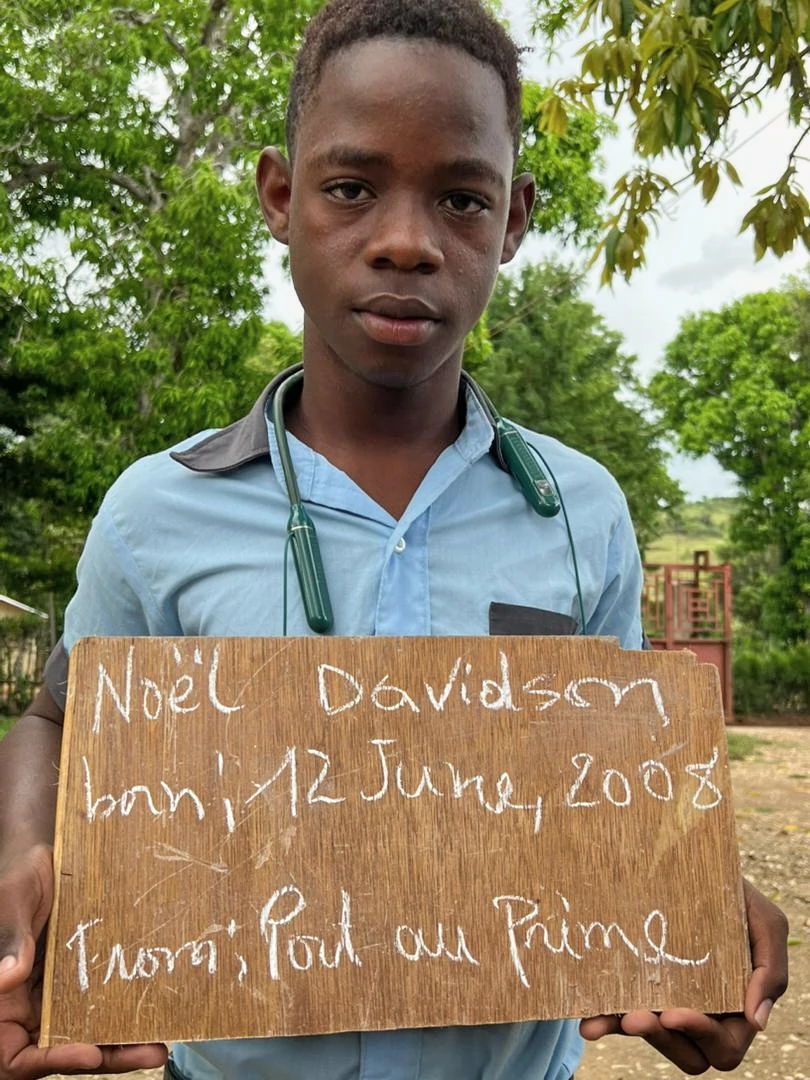 Noël Davidson
born; 12 June, 2008
From; Port au Prime